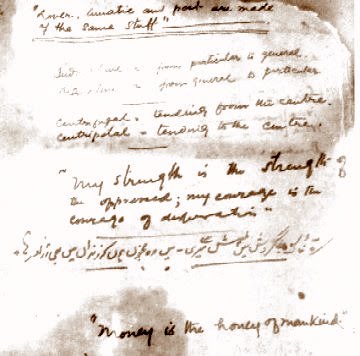 "Lover, Lunatic and poet are made
of the same stuff"
from particular to general.
from general to particular
Centrifugal = tending from the centre.
Centripetal = tending to the centre.
"My strength is the strength of
the oppressed; my courage is the
courage of desperation"
گردش میں تپش سے میری - میں وہ مجنوں ہوں زنداں میں بھی آزاد رہا
"Money is the honey of mankind"